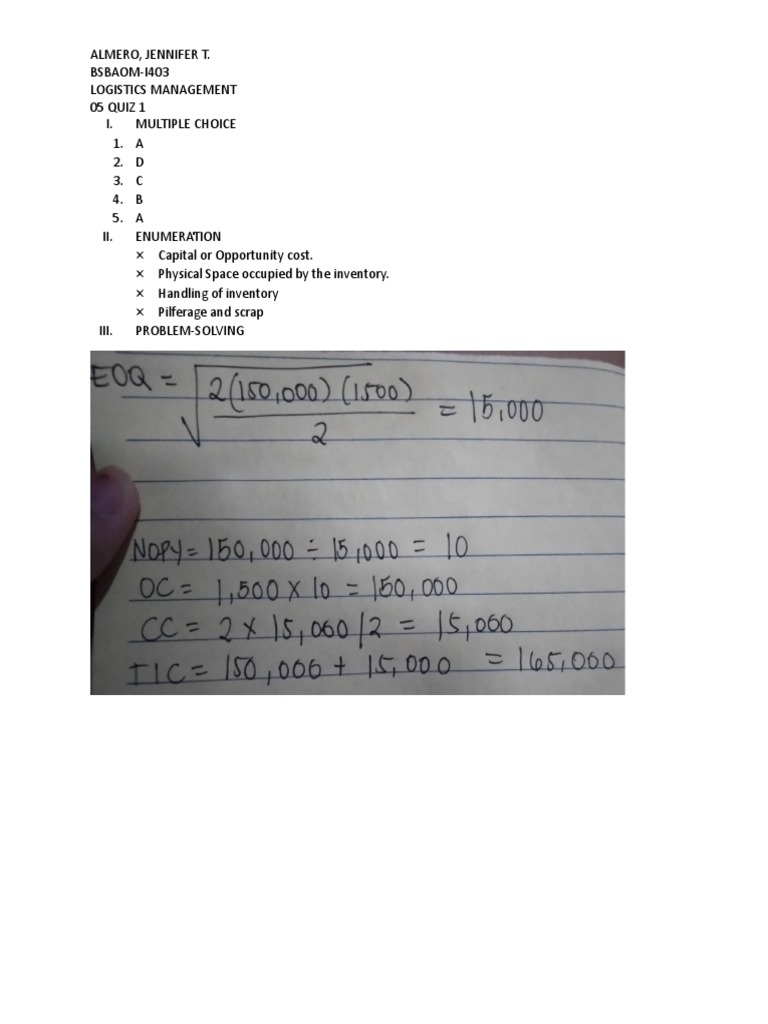 ALMERO, JENNIFER T.
BSBAOM-I403
LOGISTICS MANAGEMENT
05 QUIZ 1
I. MULTIPLE CHOICE
1. A
2. D
3. C
4. B
5. A
II. ENUMERATION
× Capital or Opportunity cost.
× Physical Space occupied by the inventory.
× Handling of inventory
× Pilferage and scrap
III. PROBLEM-SOLVING
EOQ = √ 2(150,000)(1500) / 2 = 15,000
NOPY = 150,000 ÷ 15,000 = 10
OC = 1,500 × 10 = 150,000
CC = 2 × 15,000/2 = 15,000
TIC = 150,000 + 15,000 = 165,000